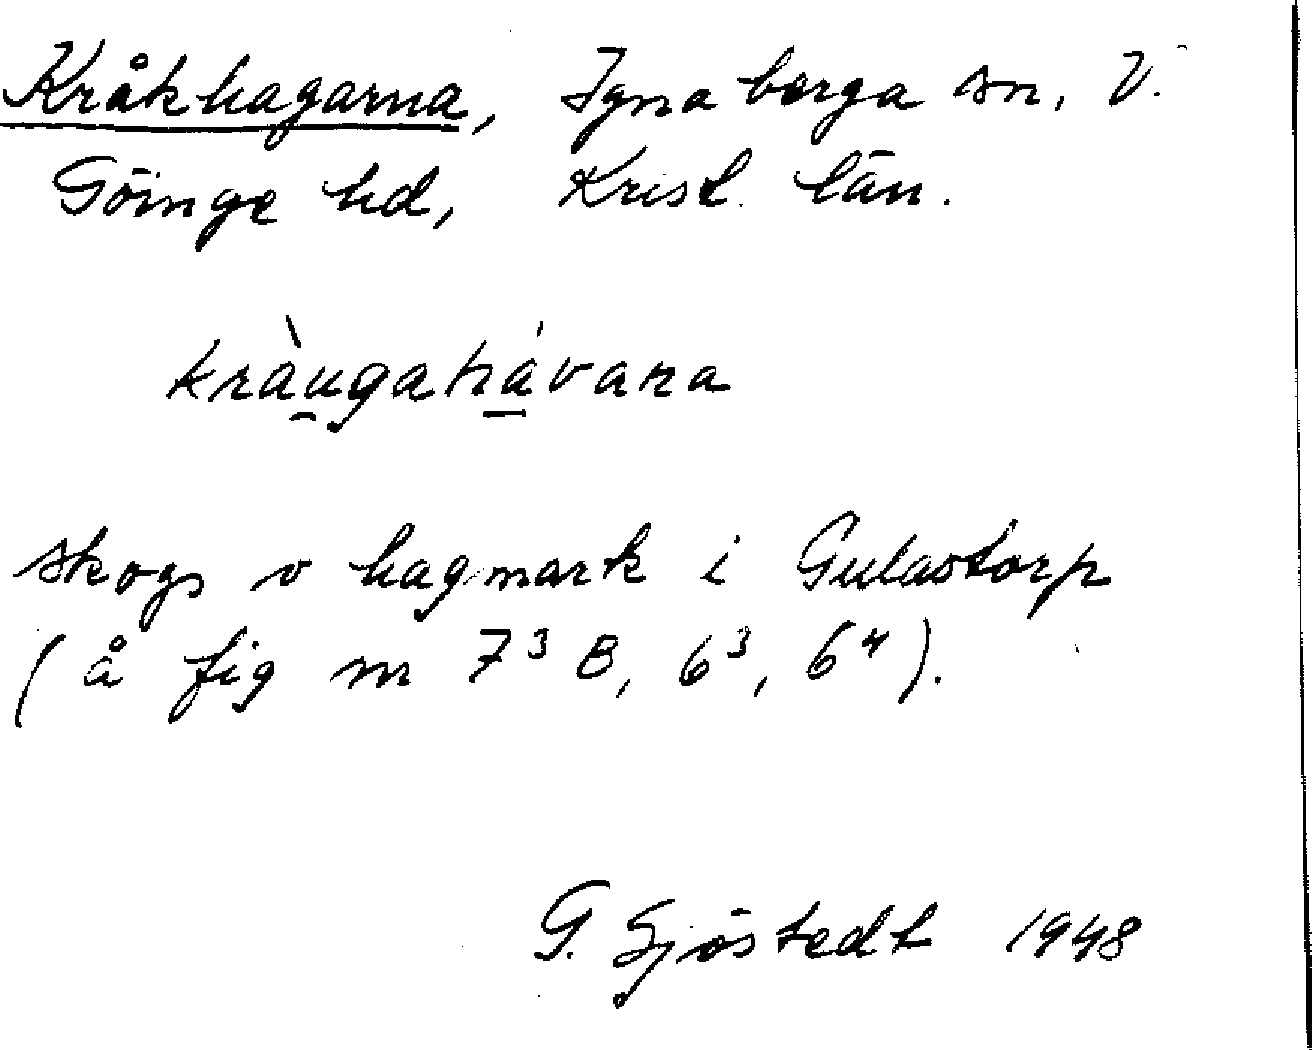 Kråkhagarna, Ignaberga sn, V.
Göinge hd, Krist. län.
kràu̯gahá̱vara
skogs o hagmark i Gulastorp
(å fig nr 7³ B, 6³, 6⁴).
G. Sjöstedt 1948